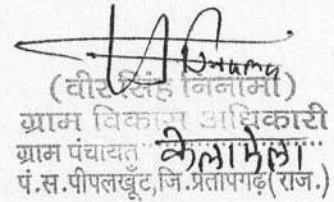 (वीर सिंह निनामा)
ग्राम विकास अधिकारी
ग्राम पंचायत केलामेला
पं.स.पीपलखूँट,जि.प्रतापगढ़(राज.)